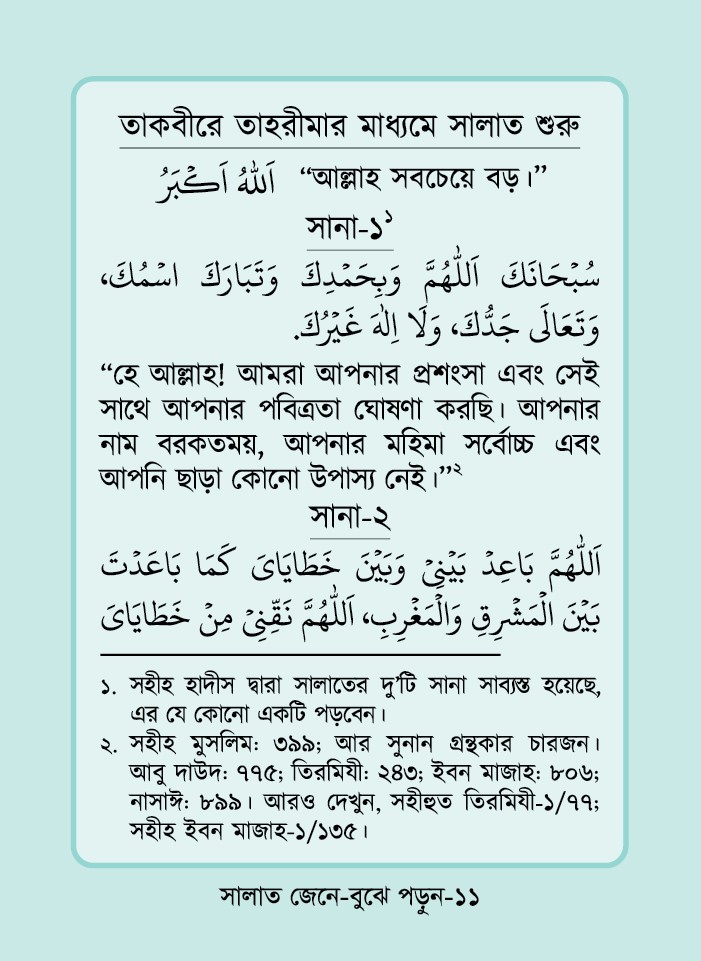 তাকবীরে তাহরীমার মাধ্যমে সালাত শুরু
“আল্লাহ সবচেয়ে বড়।” اَللّٰهُ اَكْبَرُ
সানা-১১
سُبْحَانَكَ اَللّٰهُمَّ وَبِحَمْدِكَ وَتَبَارَكَ اسْمُكَ،
وَتَعَالَى جَدُّكَ، وَلَا اِلٰهَ غَيْرُكَ.
“হে আল্লাহ! আমরা আপনার প্রশংসা এবং সেই
সাথে আপনার পবিত্রতা ঘোষণা করছি। আপনার
নাম বরকতময়, আপনার মহিমা সর্বোচ্চ এবং
আপনি ছাড়া কোনো উপাস্য নেই।”২
সানা-২
اَللّٰهُمَّ بَاعِدْ بَيْنِيْ وَبَيْنَ خَطَايَاىَ كَمَا بَاعَدْتَ
بَيْنَ الْمَشْرِقِ وَالْمَغْرِبِ، اَللّٰهُمَّ نَقِّنِيْ مِنْ خَطَايَاىَ
১. সহীহ হাদীস দ্বারা সালাতের দু’টি সানা সাব্যস্ত হয়েছে,
এর যে কোনো একটি পড়বেন।
২. সহীহ মুসলিম: ৩৯৯; আর সুনান গ্রন্থকার চারজন।
আবু দাউদ: ৭৭৫; তিরমিযী: ২৪৩; ইবন মাজাহ: ৮০৬;
নাসাঈ: ৮৯৯। আরও দেখুন, সহীহুত তিরমিযী-১/৭৭;
সহীহ ইবন মাজাহ-১/১৩৫।
সালাত জেনে-বুঝে পড়ুন-১১